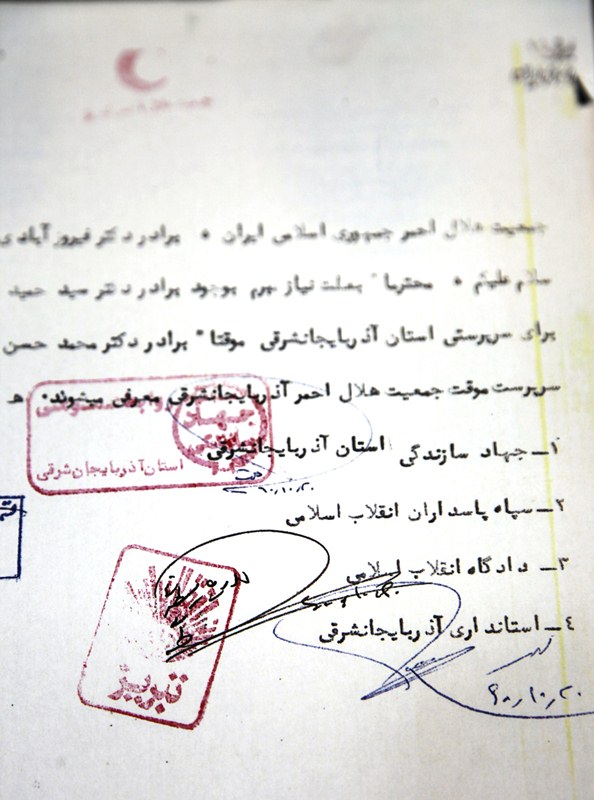 جمعیت هلال احمر جمهوری اسلامی ایران * برادر دکتر فیروزآبادی
سلام علیکم * محترما" بعلت نیاز مبرم بوجود برادر دکتر سید حمید
برای سرپرستی استان آذربایجانشرقی موقتا" برادر دکتر محمد حسن
سرپرست موقت جمعیت هلال احمر آذربایجانشرقی معرفی میشوند. هـ
۱ـ جهاد سازندگی استان آذربایجانشرقی
جهاد
استان آذربایجان شرقی
۲ـ سپاه پاسداران انقلاب اسلامی
۳ـ دادگاه انقلاب اسلامی
۴ـ استانداری آذربایجانشرقی
تبریز
۶۰,۱۰,۲۰